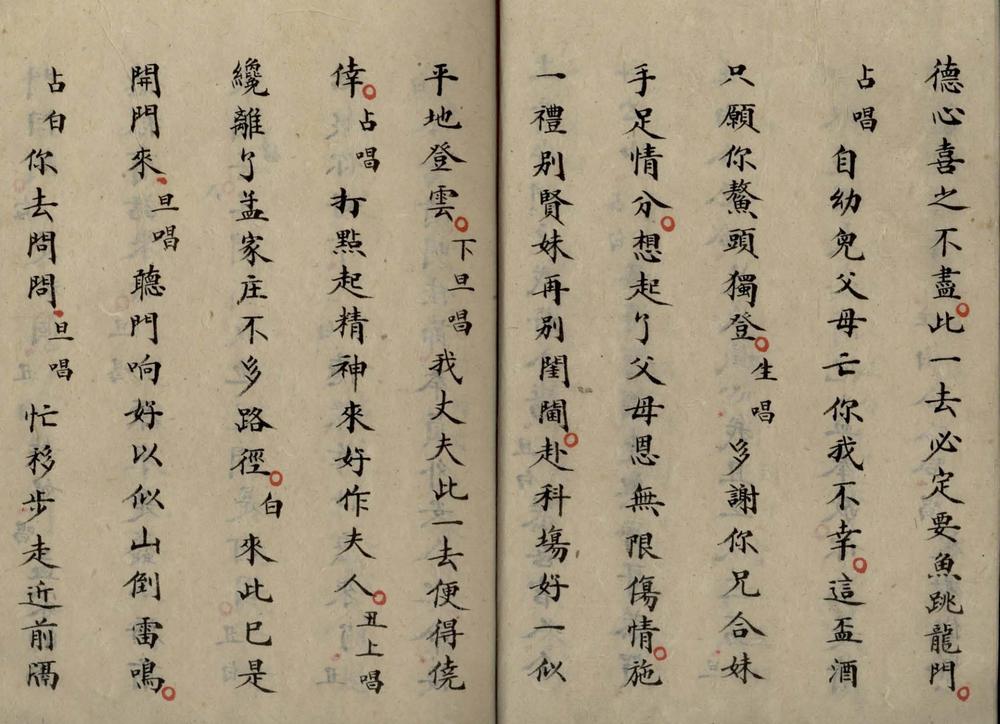 德心喜之不盡此一去必定要魚跳龍門
占唱自幼兒父母亡你我不幸這盃酒
只願你鰲頭獨登生唱多謝你兄合妹
手足情分想起了父母恩無限傷情施
一禮别賢妹再别閨閫赴科塲好一似
平地登雲下旦唱我丈夫此一去便得僥
倖占唱打點起精神來好作夫人丑上唱
纔離了孟家庄不多路徑白來此已是
開門來旦唱聽門响好以似山倒雷鳴
占白你去問問旦唱忙移步走近前隔